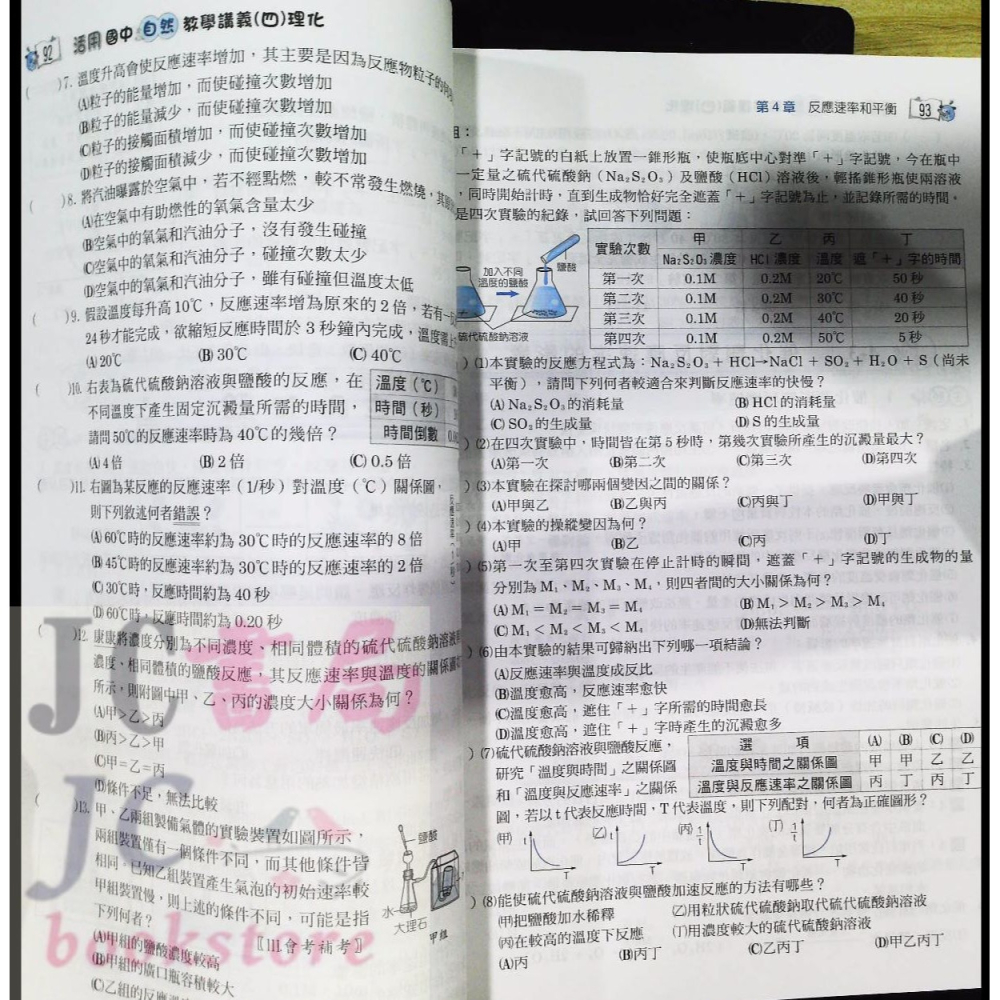 92 活用國中自然教學講義(四)理化
( )7. 溫度升高會使反應速率增加，其主要是因為反應物粒子的
(A)粒子的能量增加，而使碰撞次數增加
(B)粒子的能量減少，而使碰撞次數增加
(C)粒子的接觸面積增加，而使碰撞次數增加
(D)粒子的接觸面積減少，而使碰撞次數增加
( )8. 將汽油曝露於空氣中，若不經點燃，較不常發生燃燒，其
(A)在空氣中有助燃性的氧氣含量太少
(B)空氣中的氧氣和汽油分子，沒有發生碰撞
(C)空氣中的氧氣和汽油分子，碰撞次數太少
(D)空氣中的氧氣和汽油分子，雖有碰撞但溫度太低
( )9. 假設溫度每升高10℃，反應速率增為原來的2倍，若有一
24秒才能完成，欲縮短反應時間於3秒鐘內完成，溫度需
(A)20℃ (B)30℃ (C)40℃
( )10. 右表為硫代硫酸鈉溶液與鹽酸的反應，在
不同溫度下產生固定沉澱量所需的時間，
請問50℃的反應速率時為40℃的幾倍？
溫度（℃）
時間（秒）
時間倒數
(A)4倍 (B)2倍 (C)0.5倍
( )11. 右圖為某反應的反應速率（1/秒）對溫度（℃）關係圖，
則下列敘述何者錯誤？
(A)60℃時的反應速率約為30℃時的反應速率的8倍
(B)45℃時的反應速率約為30℃時的反應速率的2倍
(C)30℃時，反應時間約為40秒
(D)60℃時，反應時間約為0.20秒
( )12. 康康將濃度分別為不同濃度、相同體積的硫代硫酸鈉溶液
濃度、相同體積的鹽酸反應，其反應速率與溫度的關係圖
所示，則附圖中甲、乙、丙的濃度大小關係為何？
(A)甲＞乙＞丙
(B)丙＞乙＞甲
(C)甲＝乙＝丙
(D)條件不足，無法比較
( )13. 甲、乙兩組製備氣體的實驗裝置如圖所示，
兩組裝置僅有一個條件不同，而其他條件皆
相同。已知乙組裝置產生氣泡的初始速率較
甲組裝置慢，則上述的條件不同，可能是指
下列何者？ 〖111會考補考〗
(A)甲組的鹽酸濃度較高
(B)甲組的廣口瓶容積較大
(C)乙組的反應
鹽酸
水
大理石
甲組
第4章 反應速率和平衡 93
組：
「＋」字記號的白紙上放置一錐形瓶，使瓶底中心對準「＋」字記號，今在瓶中
一定量之硫代硫酸鈉（Na₂S₂O₃）及鹽酸（HCl）溶液後，輕搖錐形瓶使兩溶液
，同時開始計時，直到生成物恰好完全遮蓋「＋」字記號為止，並記錄所需的時間。
是四次實驗的紀錄，試回答下列問題：
加入不同
溫度的鹽酸
鹽酸
硫代硫酸鈉溶液
實驗次數 甲 乙 丙 丁
Na₂S₂O₃濃度 HCl濃度 溫度 遮「＋」字的時間
第一次 0.1M 0.2M 20℃ 50秒
第二次 0.1M 0.2M 30℃ 40秒
第三次 0.1M 0.2M 40℃ 20秒
第四次 0.1M 0.2M 50℃ 5秒
)(1)本實驗的反應方程式為：Na₂S₂O₃＋HCl→NaCl＋SO₂＋H₂O＋S（尚未
平衡），請問下列何者較適合來判斷反應速率的快慢？
(A)Na₂S₂O₃的消耗量 (B)HCl的消耗量
(C)SO₂的生成量 (D)S的生成量
)(2)在四次實驗中，時間皆在第5秒時，第幾次實驗所產生的沉澱量最大？
(A)第一次 (B)第二次 (C)第三次 (D)第四次
)(3)本實驗在探討哪兩個變因之間的關係？
(A)甲與乙 (B)乙與丙 (C)丙與丁 (D)甲與丁
)(4)本實驗的操縱變因為何？
(A)甲 (B)乙 (C)丙 (D)丁
)(5)第一次至第四次實驗在停止計時的瞬間，遮蓋「＋」字記號的生成物的量
分別為M₁、M₂、M₃、M₄，則四者間的大小關係為何？
(A)M₁＝M₂＝M₃＝M₄ (B)M₁＞M₂＞M₃＞M₄
(C)M₁＜M₂＜M₃＜M₄ (D)無法判斷
)(6)由本實驗的結果可歸納出下列哪一項結論？
(A)反應速率與溫度成反比
(B)溫度愈高，反應速率愈快
(C)溫度愈高，遮住「＋」字所需的時間愈長
(D)溫度愈高，遮住「＋」字時產生的沉澱愈多
)(7)硫代硫酸鈉溶液與鹽酸反應，
研究「溫度與時間」之關係圖
和「溫度與反應速率」之關係
圖，若以t代表反應時間，T代表溫度，則下列配對，何者為正確圖形？
選項 (A) (B) (C) (D)
溫度與時間之關係圖 甲 甲 乙 乙
溫度與反應速率之關係圖 丙 丁 丙 丁
(甲) t T (乙) t T (丙) 1/t T (丁) 1/t T
)(8)能使硫代硫酸鈉溶液與鹽酸加速反應的方法有哪些？
(甲)把鹽酸加水稀釋 (乙)用粒狀硫代硫酸鈉取代硫代硫酸鈉溶液
(丙)在較高的溫度下反應 (丁)用濃度較大的硫代硫酸鈉溶液
(A)丙 (B)丙丁 (C)乙丙丁 (D)甲乙丙丁
JC書局
JC
bookstore